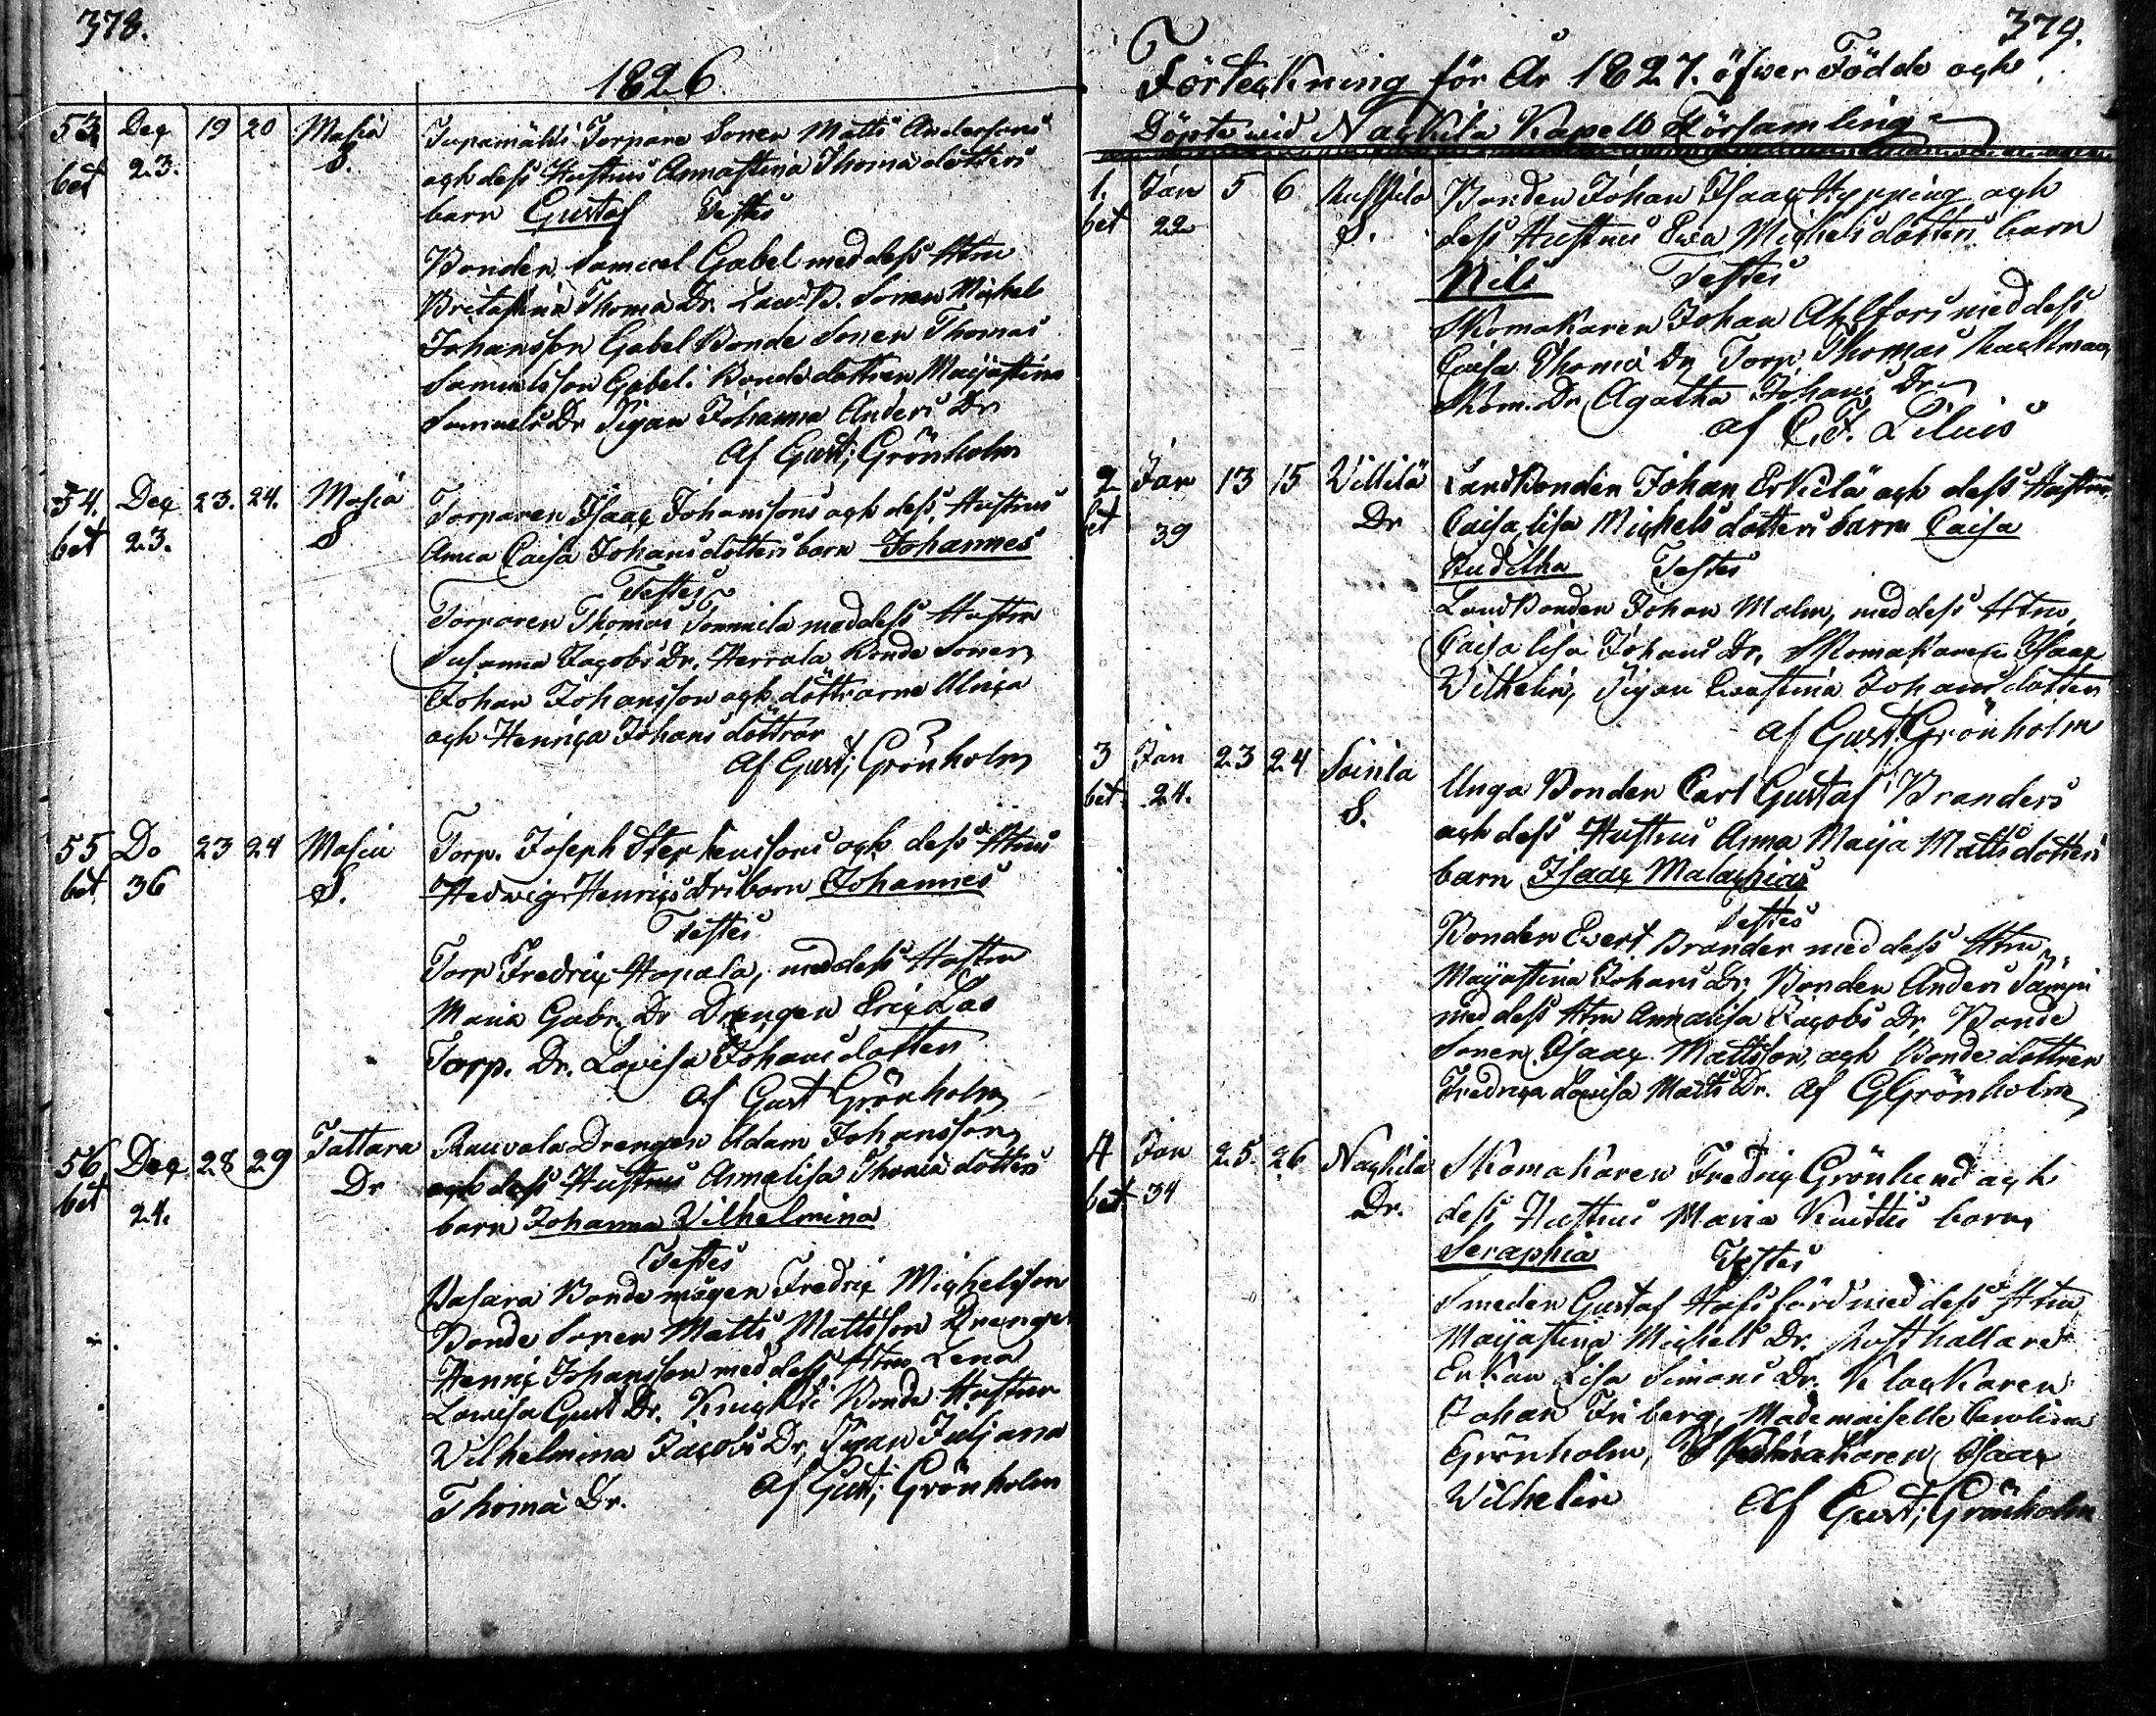 378.
1826
53 Dec 19 20 Masia
bet 23. S.
Torpare Sonen Matts Anderssons
och dess Hustrus Annastina Thomä dotters
barn Gustaf Testes
Bonden Samuel Gabel med dess Htru
Britastina Thomä Dr. Landb. Sonen Michel
Johansson Gabel Bonde Sonen Thomas
Samuelsson Gabel: Bonde dottren Maijastina
Samuels Dr Pigan Johanna Anders Dr
Af Gust; Grönholm
54. Dec 23. 24. Masiä
bet 23. S
Torparen Isaac Johanssons och dess Hustrus
Anna Caisa Johansdotters barn Johannes
Testes
Torparen Thomas Sommila med dess Hustru
Susanna Jacobs Dr. Herrala Bonde Sonen
Johan Johansson och döttrarne Ulrica
och Henrica Johans döttrar
Af Gust; Grönholm
55 Do 23 24 Masiu
bet. 36 S.
Torp. Joseph Stephenssons och dess Htrus
Hedwig Henrics Drs barn Johannes
Testes
Torp Fredric Hopala, med dess Hustru
Maria Gabr. Dr Drengen Eric Las
Torp. Dr. Lovisa Johans dotter
Af Gust Grönholm
56 Dec 28 29 Tattara
bet 24. Dr
Rauvola Drengen Adam Johansson
och dess Hustrus Annalisa Thomä dotters
barn Johanna Vilhelmina
Testes
Vasara Bonde mågen Fredric Michelsson
Bonde Sonen Matts Mattsson Drengen
Henric Johansson med dess Htru Lena
Lovisa Gust Dr. Knichti Bonde Hustrun
Vilhelmina Jacobs Dr, Pigan Juljana
Thomä Dr. Af Gust; Grönholm
379.
Förteckning för År 1827. öfwer Födde och
Döpte wid Nackila Kapells Församling
1. Jan 5 6 Ruskila
bet 22 S.
Bonden Johan Isacs Hypping och
dess Hustrus Ewa Michels dotters barn
Nils Testes
Skomakaren Johan Ahlfors med dess
Caisa Thomä Dr Torp. Thomas Rackman
Skom. Dr Agatha Johans Dr
af C. F. Lilius
2 Jan 13 15 Villilä
bet 39 Dr
Landbonden Johan Erkilä och dess Hustru
Caisa lisa Michels dotters barn Caisa
Testes
Landbonden Johan Malm, med dess Htru
Caisa lisa Johans Dr, Skomakaren Isaac
Vilhelin, Pigan Ewastina Johans dotter
af Gust. Grönholm
3 Jan 23 24 Soinila
bet. 24. S.
Unga Bonden Carl Gustaf Branders
och dess Hustrus Anna Maija Matts dotters
barn Isaac Malachias
Testes
Bonden Evert Brander med dess Htru
Maijastina Johans Dr; Bonden Anders Sämpi
med dess Htru Annalisa Jacobs Dr, Bonde
Sonen Isaac Mattsson, och Bonde dottren
Fredrica Lovisa Matts Dr. af GGrönholm
4 Jan 25. 26 Nackila
bet 34 Dr.
Skomakaren Fredric Grönlund och
dess Hustrus Maria Knittis barn
Seraphia Testes
Smeden Gustaf Hofsförd med dess Htru
Maijastina Michels Dr. Rusthållare
Enkan Lisa Simons Dr. Klockaren
Johan Friberg, Mademoiselle Carolina
Grönholm, Skomakaren Isaac
Vilhelin Af Gust; Grönholm